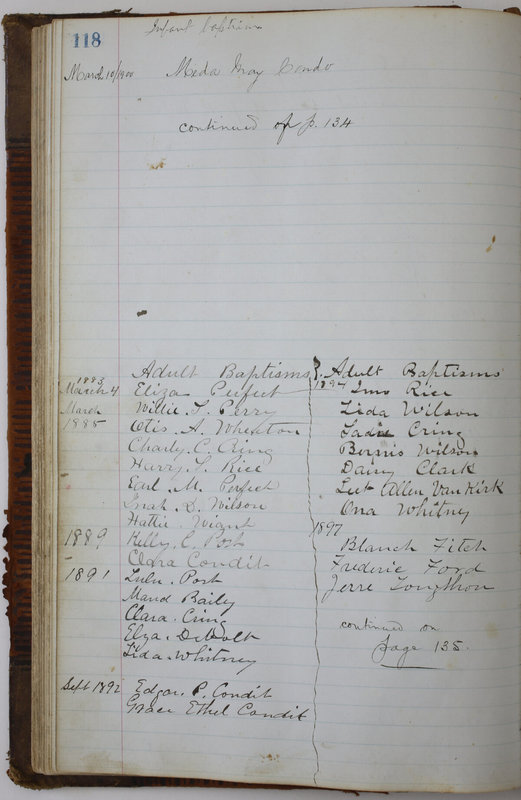 118
Infant Baptism
March 10/1900 Meda May Condo
continued of p. 134
Adult Baptisms
1883
March 4 Eliza Perfect
March Willie. T. Perry
1885 Otis. A. Wheaton
Charly. C. Cring
Harry. T. Rice
Earl. M. Perfect
D. Wilson
Hattie. Wigut
1889 Kelly. C. Posh
Clara Condit
1891 Lulu. Post
Maud Baily
Clara. Cring
Elza. DeWolt
Lida. Whitney
Sept 1892 Edgar. P. Condit
Grace Ethel Condit
Adult Baptisms
1894 Imo Rice
Lida Wilson
Sadie Cring
Bernis Wilson
Daisy Clark
Lut Allen VanKirk
Ona Whitney
1897
Blanch Fitch
Frederic Ford
Jerre Longthon
continued on
page 135.